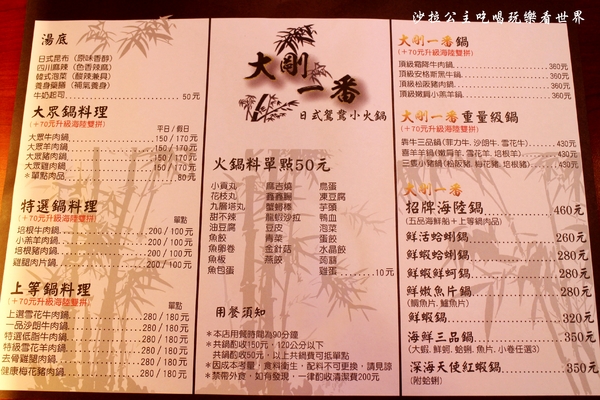 沙拉公主吃喝玩樂看世界
湯底
日式昆布 (原味香醇)
四川麻辣 (色香辣麻)
韓式泡菜 (酸辣兼具)
養身藥膳 (補氣養身)
牛奶起司 50元
大眾鍋料理
(+70元升級海陸雙拼)
平日 / 假日
大眾牛肉鍋 150 / 170元
大眾羊肉鍋 150 / 170元
大眾豬肉鍋 150 / 170元
大眾雞肉鍋 150 / 170元
*單點肉品 80元
特選鍋料理
(+70元升級海陸雙拼)
單點
培根牛肉鍋 200 / 100元
小羔羊肉鍋 200 / 100元
培根豬肉鍋 200 / 100元
雞腿肉片鍋 200 / 100元
上等鍋料理
(+70元升級海陸雙拼)
單點
上選雪花牛肉鍋 280 / 180元
一品沙朗牛肉鍋 280 / 180元
特選低脂牛肉鍋 280 / 180元
特級雪花羊肉鍋 280 / 180元
去骨雞腿肉鍋 280 / 180元
健康梅花豬肉鍋 280 / 180元
大剛
一番
日式鴛鴦小火鍋
火鍋料單點50元
小貢丸 麻吉燒 鳥蛋
花枝丸 鑫鑫腸 凍豆腐
九層塔丸 蟹味棒 芋頭
甜不辣 龍蝦沙拉 鴨血
油豆腐 豆皮 泡菜
魚餃 青菜 蛋餃
魚卵卷 金針菇 水晶餃
魚板 燕餃 蒟蒻
魚包蛋 雞蛋 10元
用餐須知
*本店用餐時間為90分鐘
*共鍋酌收150元，120公分以下
共鍋酌收50元，以上共鍋費可抵單點
*因成本考量，食料衛生，配料不可更換，請見諒
*禁帶外食，如有發現，一律酌收清潔費200元
大剛一番鍋
(+70元升級海陸雙拼)
頂級霜降牛肉鍋 360元
頂級安格斯黑牛鍋 360元
頂級松阪豬肉鍋 360元
頂級嫩肩小羔羊鍋 360元
大剛一番重量級鍋
(+70元升級海陸雙拼)
犇牛三品鍋 (菲力牛. 沙朗牛. 雪花牛) 430元
喜羊羊鍋 (嫩肩羊. 雪花羊. 培根羊) 430元
三隻小豬鍋 (松阪豬. 梅花豬. 培根豬) 430元
大剛一番
招牌海陸鍋 460元
(五品海鮮船+上等鍋肉品)
鮮活蛤蜊鍋 260元
鮮蝦蛤蜊鍋 280元
鮮蝦鮮蚵鍋 280元
鮮嫩魚片鍋 280元
(鯛魚片. 鱸魚片)
鮮蝦鍋 320元
海鮮三品鍋 350元
(大蝦. 鮮蚵. 蛤蜊. 魚片. 小卷任選3)
深海天使紅蝦鍋 350元
(附蛤蜊)